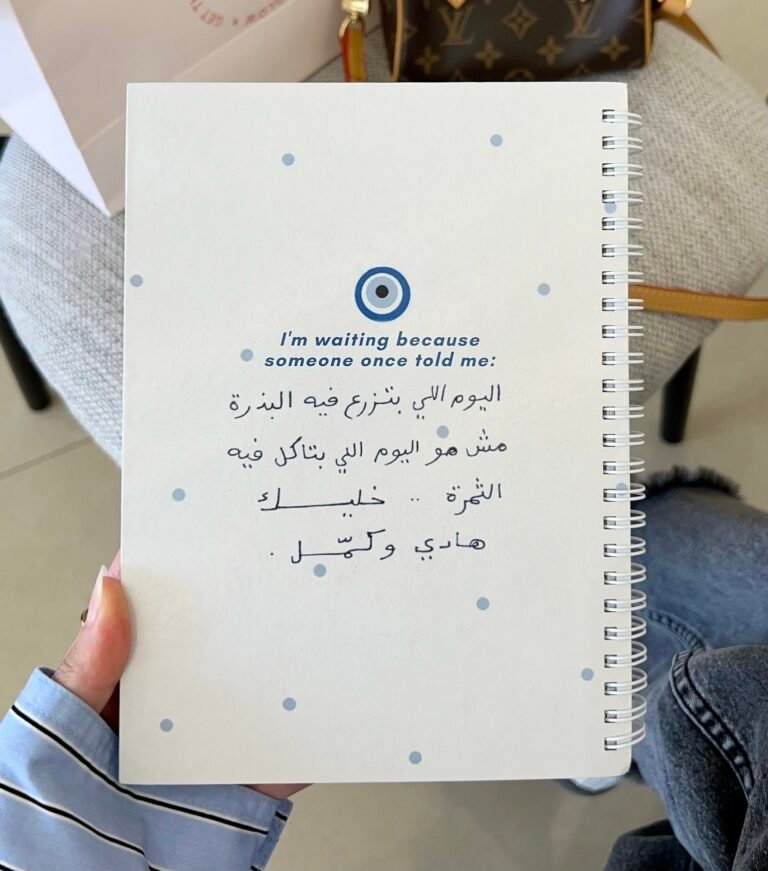 I'm waiting because
someone once told me:
اليوم اللي بتزرع فيه البذرة
مش هو اليوم اللي بتاكل فيه
الثمرة .. خليـــــك
هادي وكمّـــل .